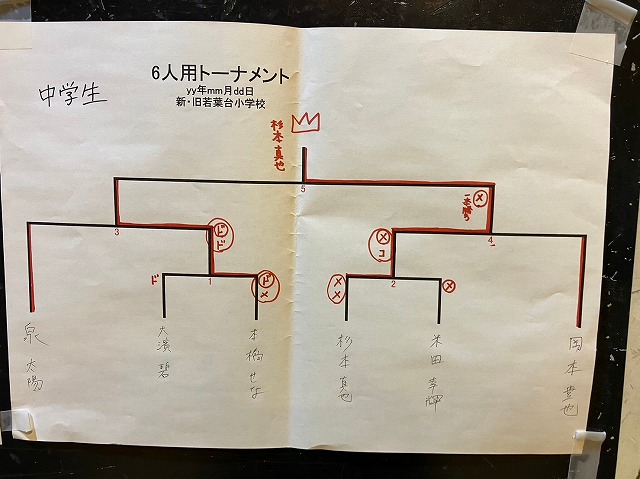 6人用トーナメント
中学生
yy年mm月dd日
新・旧若葉台小学校
杉本真也
5
メ
一本勝ち
3
ド
ド
メ
コ
4
ド
1
ド
メ
メ
メ
2
メ
泉 太陽
大濱 碧
本橋 せな
杉本 真也
米田 幸輝
岡本 豊也